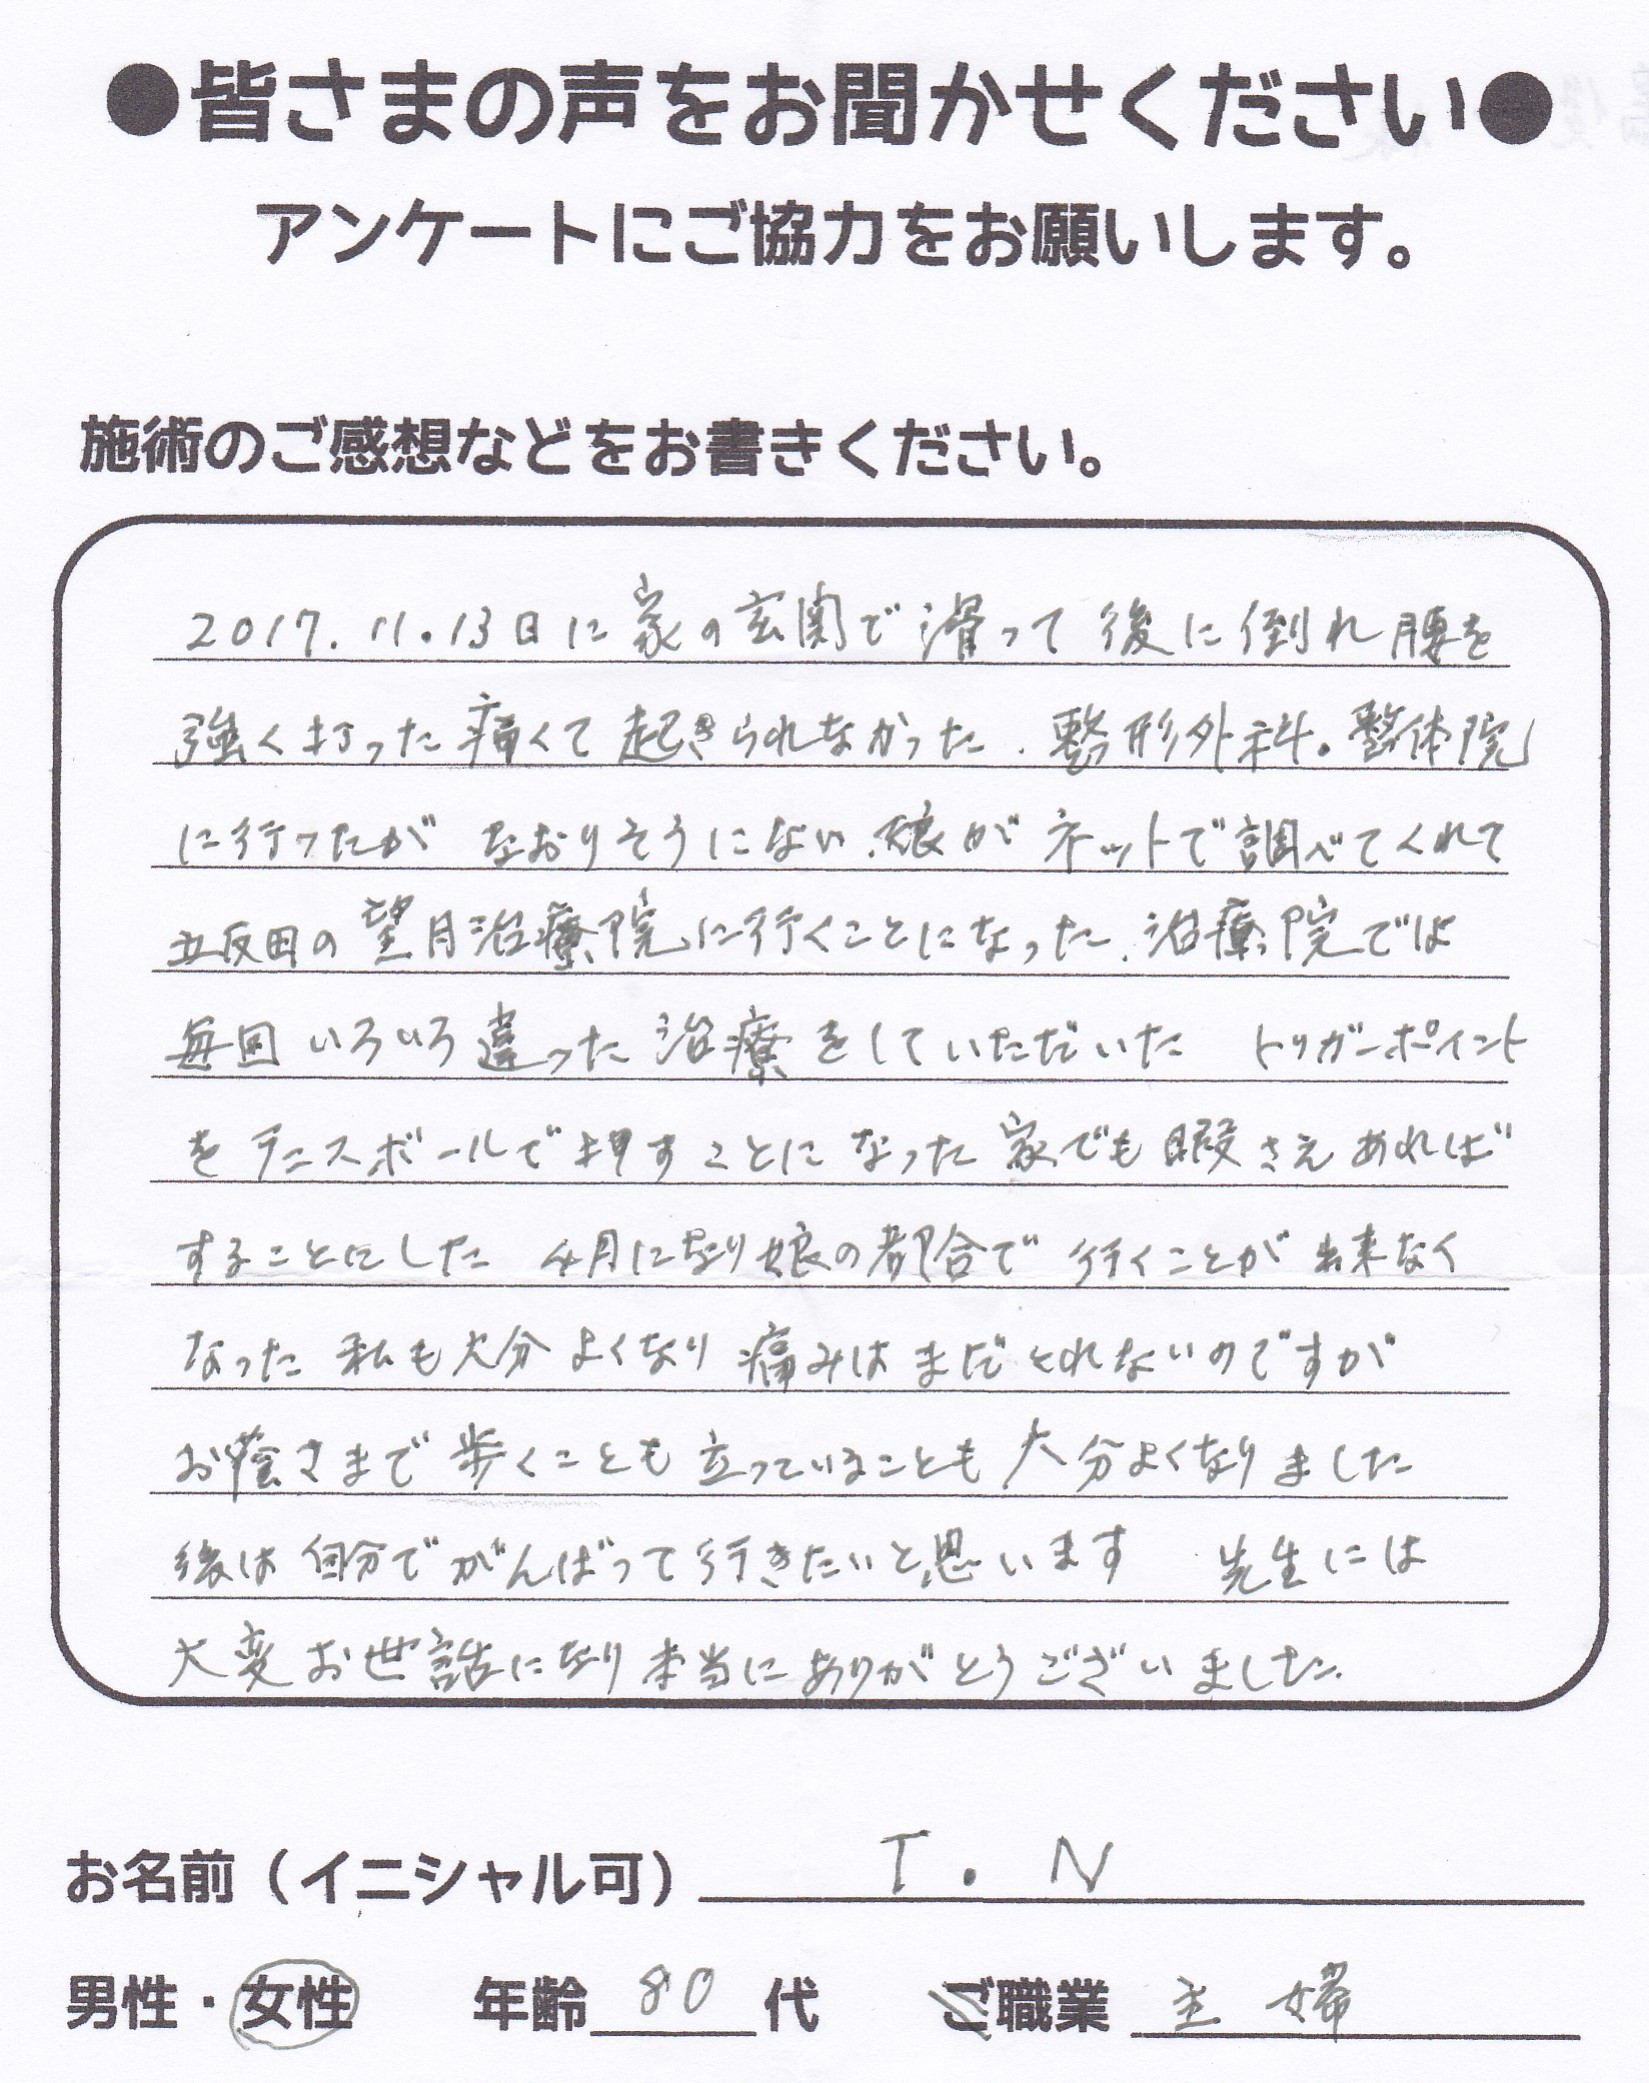 ●皆さまの声をお聞かせください●
アンケートにご協力をお願いします。
施術のご感想などをお書きください。
2017.11.13日に家の玄関で滑って後に倒れ腰を
強く打った痛くて起きられなかった.整形外科.整体院
に行ったが なおりそうにない.娘がネットで調べてくれて
五反田の望月治療院に行くことになった.治療院では
毎回いろいろ違った治療をしていただいた トリガーポイント
をテニスボールで押すことになった家でも暇さえあれば
することにした 4月になり娘の都合で行くことが出来なく
なった 私も大分よくなり痛みはまだとれないのですが
お蔭さまで歩くことも立っていることも大分よくなりました
後は自分でがんばって行きたいと思います 先生には
大変お世話になり本当にありがとうございました.
お名前（イニシャル可） T.N
男性・女性 年齢 80 代 ご職業 主婦